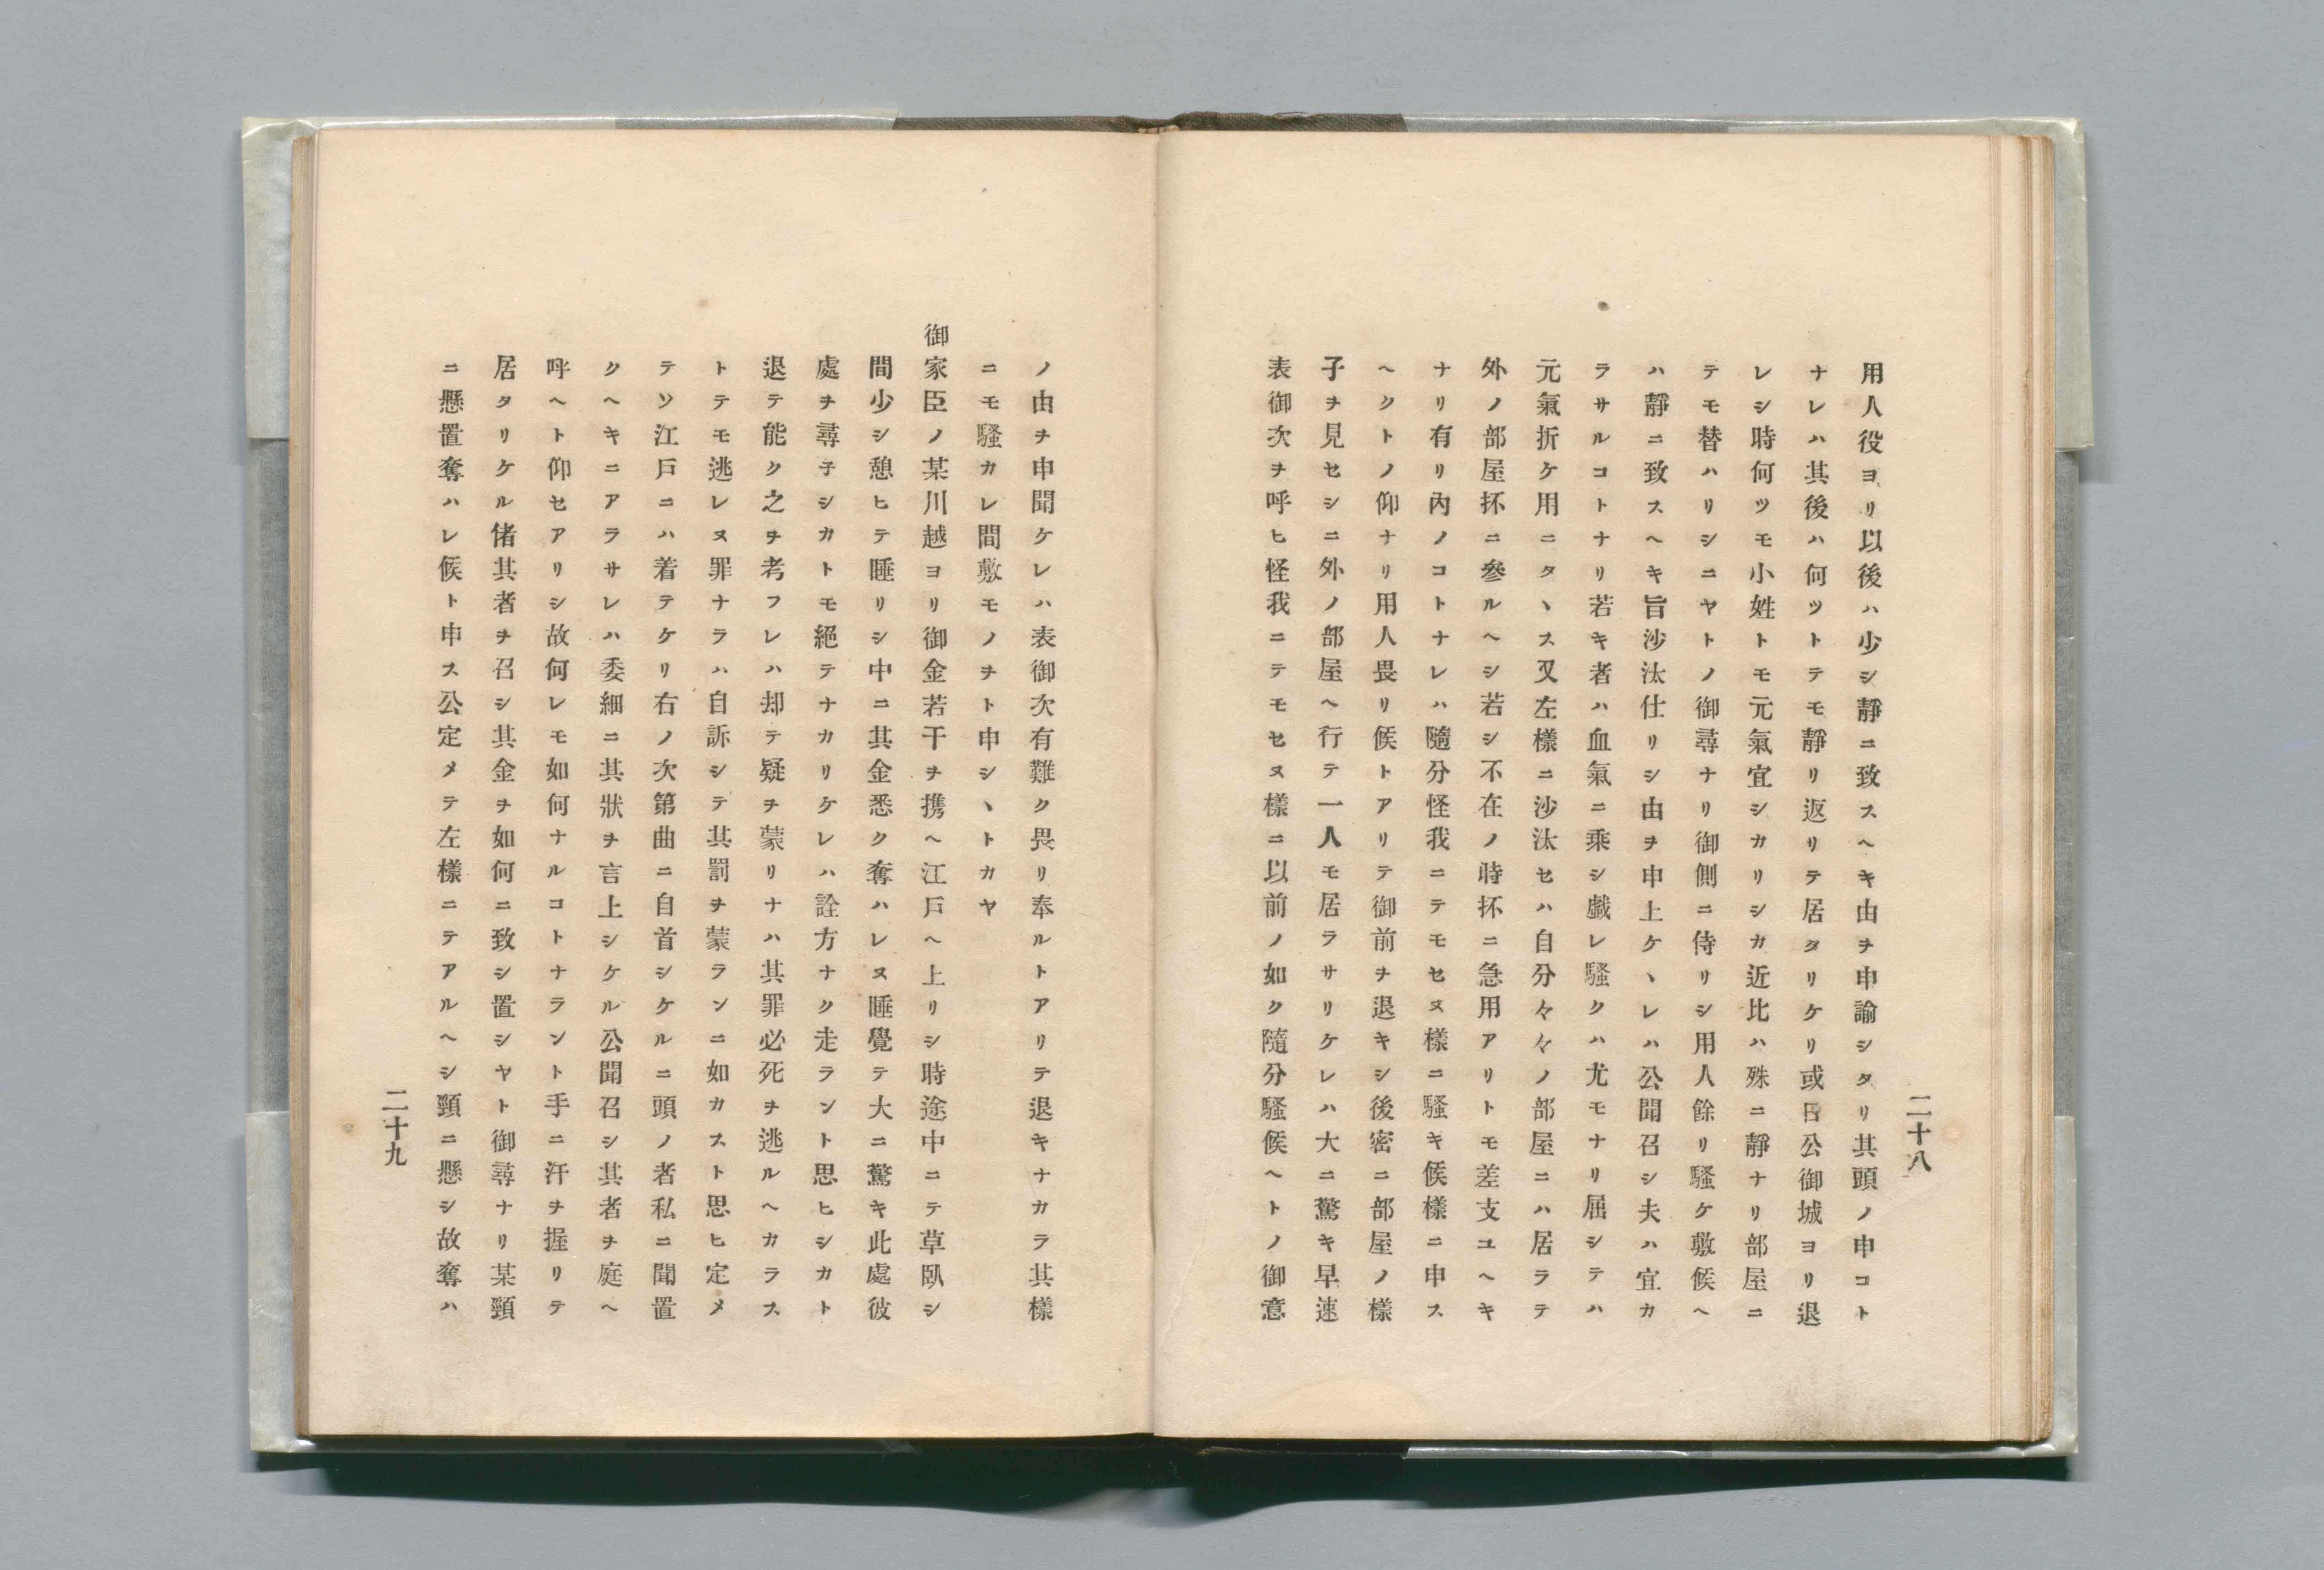 二十八
用人役ヨリ以後ハ少シ靜ニ致スヘキ由ヲ申諭シタリ其頭ノ申コト
ナレハ其後ハ何ツトテモ靜リ返リテ居タリケリ或日公御城ヨリ退
レシ時何ツモ小姓トモ元氣宜シカリシカ近比ハ殊ニ靜ナリ部屋ニ
テモ替ハリシニヤトノ御尋ナリ御側ニ侍リシ用人餘リ騷ケ敷候ヘ
ハ靜ニ致スヘキ旨沙汰仕リシ由ヲ申上ケヽレハ公聞召シ夫ハ宜カ
ラサルコトナリ若キ者ハ血氣ニ乘シ戲レ騷クハ尤モナリ屈シテハ
元氣折ケ用ニタヽス又左樣ニ沙汰セハ自分々々ノ部屋ニハ居ラテ
外ノ部屋抔ニ參ルヘシ若シ不在ノ時抔ニ急用アリトモ差支ユヘキ
ナリ有リ內ノコトナレハ隨分怪我ニテモセヌ樣ニ騷キ候樣ニ申ス
ヘクトノ仰ナリ用人畏リ候トアリテ御前ヲ退キシ後密ニ部屋ノ樣
子ヲ見セシニ外ノ部屋ヘ行テ一人モ居ラサリケレハ大ニ驚キ早速
表御次ヲ呼ヒ怪我ニテモセヌ樣ニ以前ノ如ク隨分騷候ヘトノ御意
ノ由ヲ申聞ケレハ表御次有難ク畏リ奉ルトアリテ退キナカラ其樣
ニモ騷カレ間敷モノヲト申シヽトカヤ
御家臣ノ某川越ヨリ御金若干ヲ携ヘ江戶ヘ上リシ時途中ニテ草臥シ
間少シ憩ヒテ睡リシ中ニ其金悉ク奪ハレヌ睡覺テ大ニ驚キ此處彼
處ヲ尋子シカトモ絕テナカリケレハ詮方ナク走ラント思ヒシカト
退テ能ク之ヲ考フレハ却テ疑ヲ蒙リナハ其罪必死ヲ逃ルヘカラス
トテモ逃レヌ罪ナラハ自訴シテ其罰ヲ蒙ランニ如カスト思ヒ定メ
テソ江戶ニハ着テケリ右ノ次第曲ニ自首シケルニ頭ノ者私ニ聞置
クヘキニアラサレハ委細ニ其狀ヲ言上シケル公聞召シ其者ヲ庭ヘ
呼ヘト仰セアリシ故何レモ如何ナルコトナラント手ニ汗ヲ握リテ
居タリケル偖其者ヲ召シ其金ヲ如何ニ致シ置シヤト御尋ナリ某頸
ニ懸置奪ハレ候ト申ス公定メテ左樣ニテアルヘシ頸ニ懸シ故奪ハ
二十九